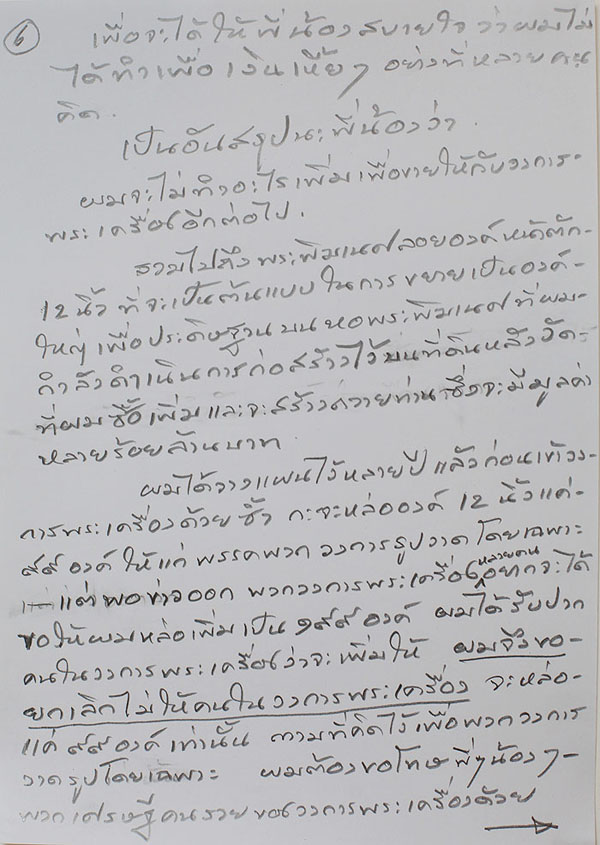 6
เพื่อจะได้ ให้พี่น้องสบายใจ ว่าผมไม่
ได้ทำเพื่อเงินเหี้ยๆ อย่างที่หลายคน
คิด.
เป็นอันสรุปนะพี่น้องว่า.
ผมจะไม่ทำอะไรเพิ่มเพื่อขายให้กับวงการ-
พระเครื่องอีกต่อไป.
รวมไปถึงพระพิฆเนศลอยองค์หน้าตัก-
12 นิ้ว ที่จะเป็นต้นแบบในการขยายเป็นองค์-
ใหญ่ เพื่อประดิษฐานบนหอพระพิฆเนศที่ผม-
กำลังดำเนินการก่อสร้างไว้บนที่ดินหลังวัด-
ที่ผมซื้อเพิ่มและจะสร้างถวายท่านซึ่งจะมีมูลค่า
หลายร้อยล้านบาท.
ผมได้วางแผนไว้หลายปีแล้วก่อนเข้าวง-
การพระเครื่องด้วยซ้ำ กะจะหล่อองค์ 12 นิ้วแค่-
๙๙ องค์ ให้แก่ พรรคพวก วงการรูปวาดโดยเฉพาะ
แต่พอข่าวออก พวกวงการพระเครื่องหลายคนอยากจะได้
ขอให้ผมหล่อเพิ่มเป็น ๑๙๙ องค์ ผมได้รับปาก
คนในวงการพระเครื่องว่าจะเพิ่มให้ ผมจึงขอ-
ยกเลิกไม่ให้คนในวงการพระเครื่อง จะหล่อ-
แค่ ๙๙ องค์ เท่านั้น ตามที่คิดไว้เพื่อพวกวงการ
วาดรูปโดยเฉพาะ ผมต้องขอโทษพี่ๆน้องๆ-
พวกเศรษฐีคนรวยของวงการพระเครื่องด้วย